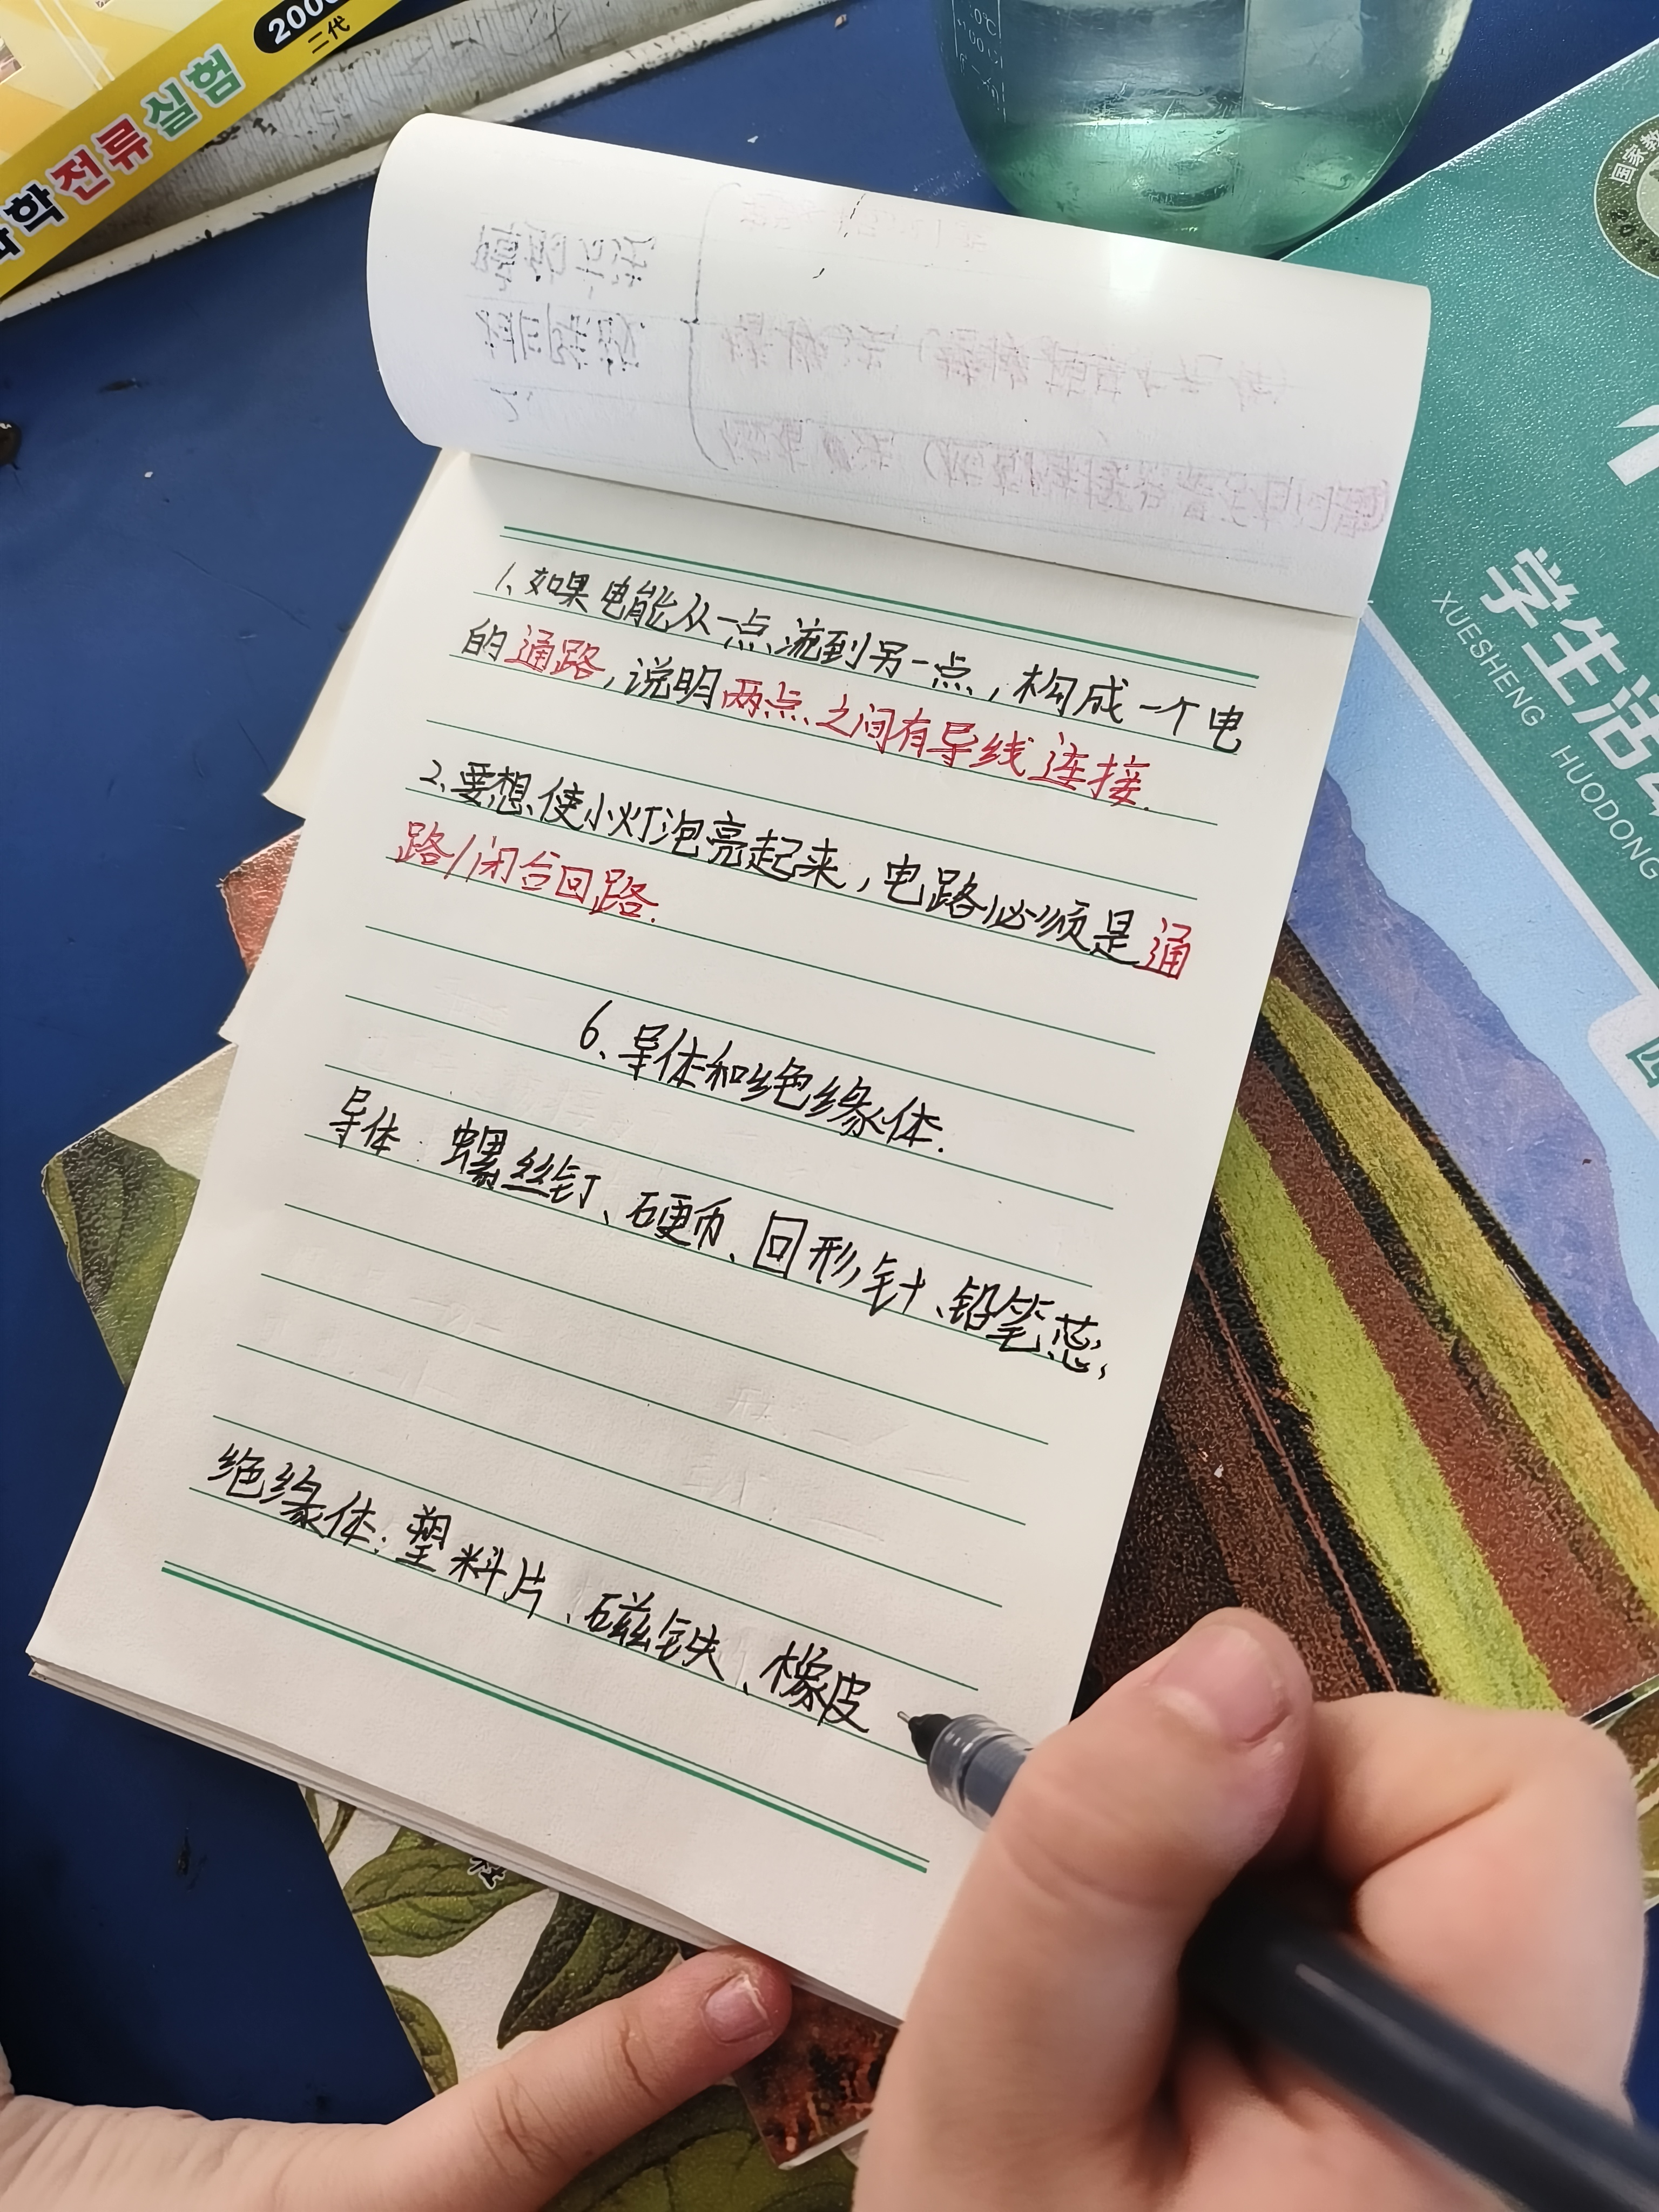 200
二代
과학 전류 실험
国家教
学生活
XUESHENG HUODONG
1、如果电能从一点流到另一点，构成一个电
的通路，说明两点之间有导线连接.
2、要想使小灯泡亮起来，电路必须是通
路/闭合回路.
6、导体和绝缘体.
导体：螺丝钉、硬币、回形针、铅笔芯，
绝缘体：塑料片、磁铁、橡皮